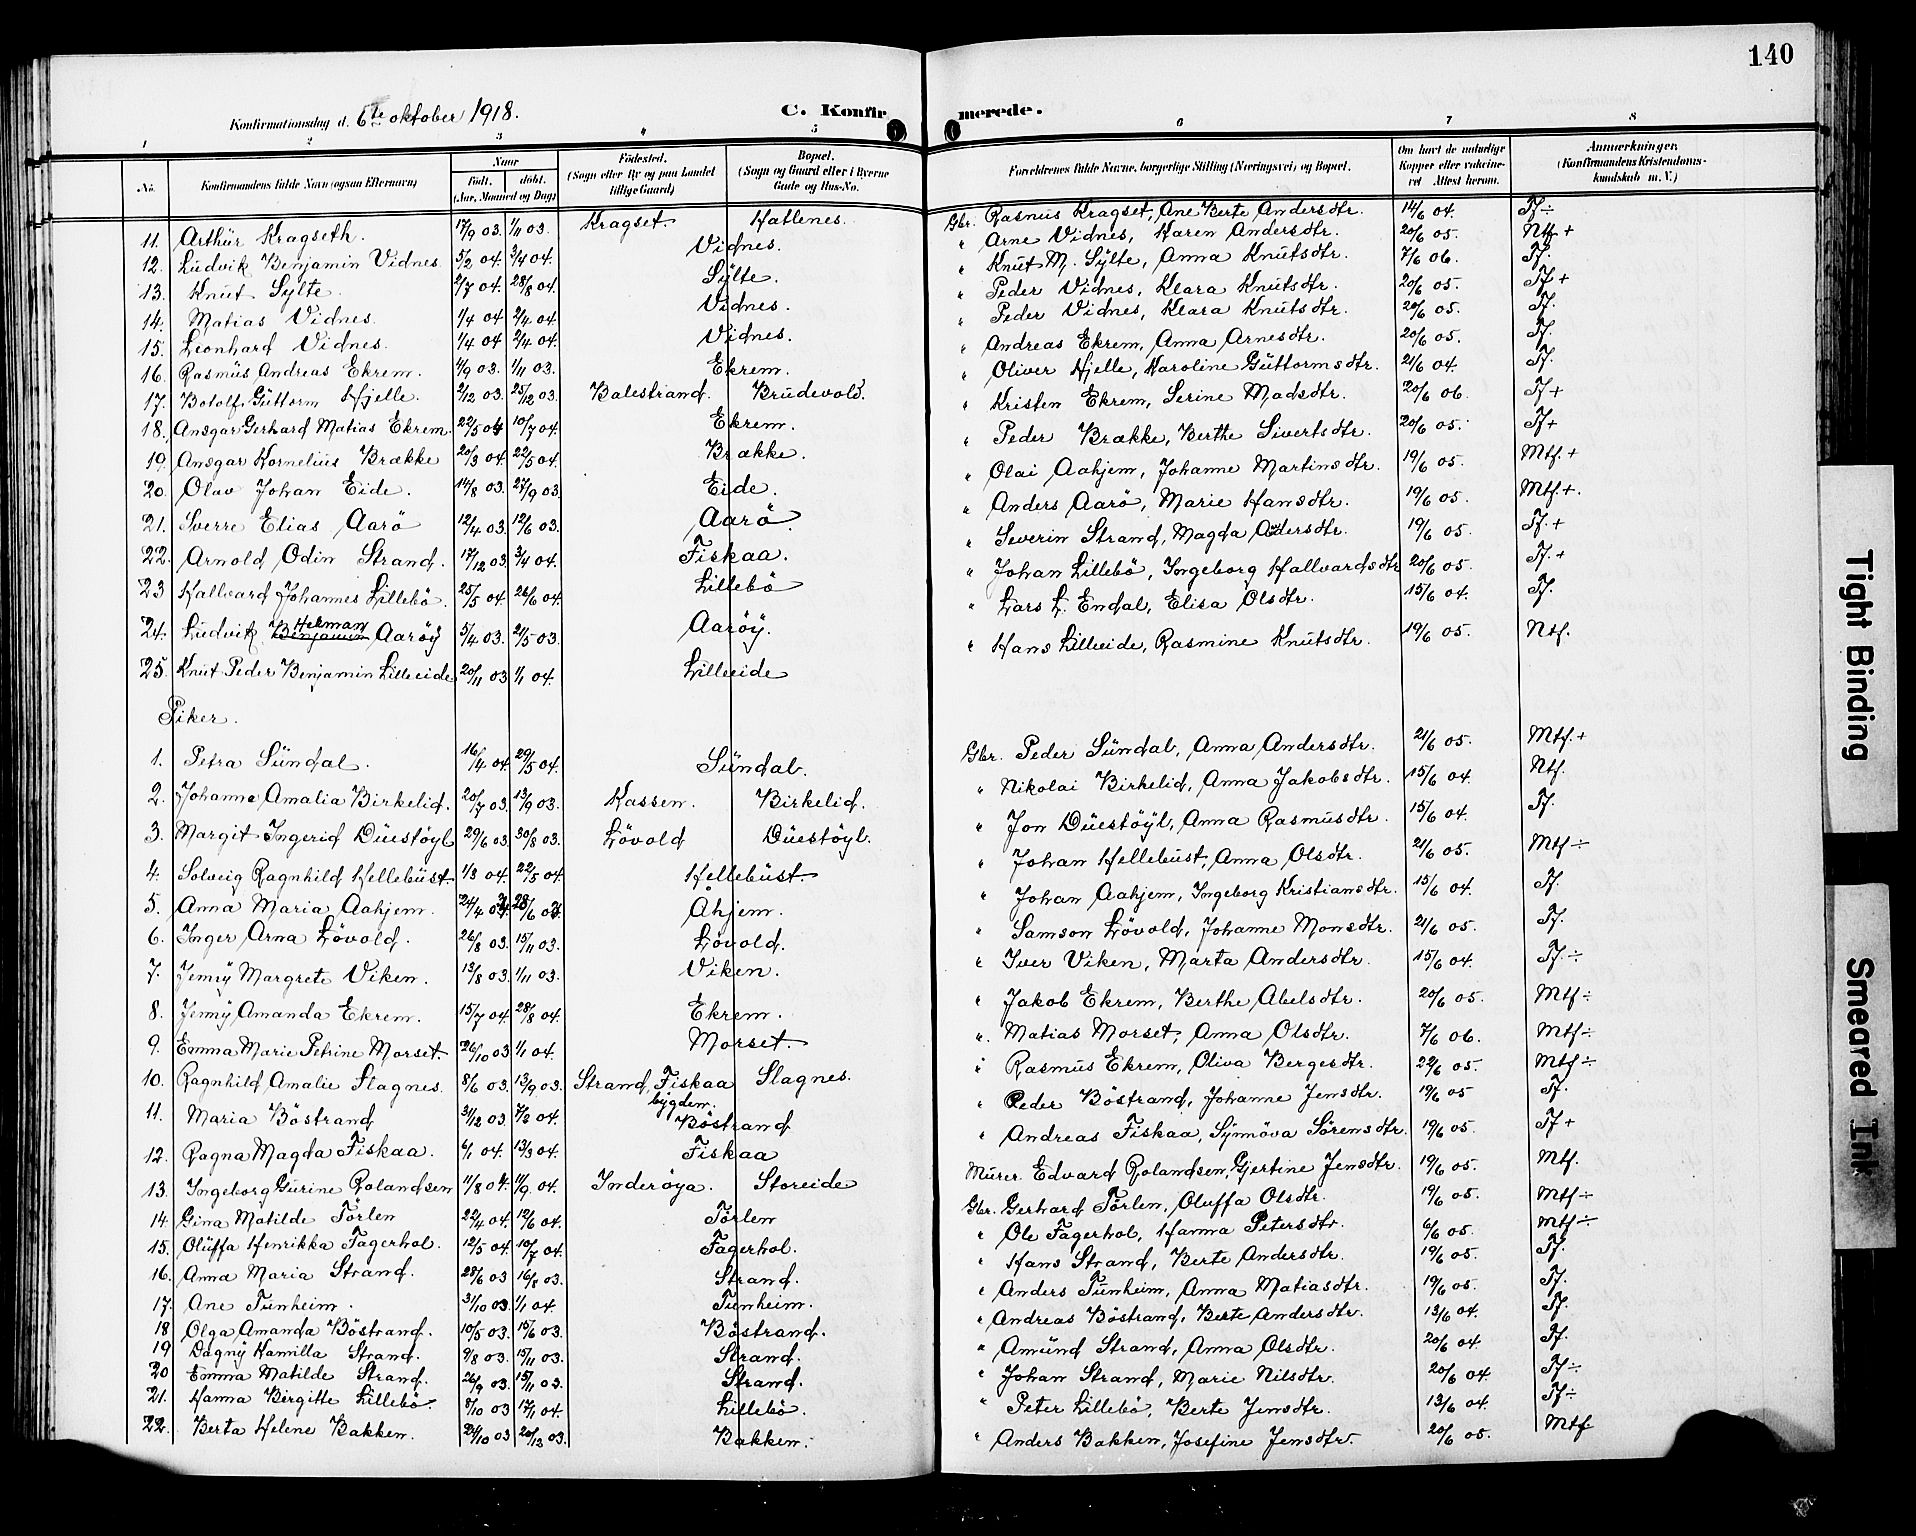 140
Konfirmationsdag d. 6te oktober 1918. C. Konfirmerede.
1 2 3 4 5 6 7 8
No. Konfirmandens fulde Navn (ogsaa Efternavn) Naar Født. døbt. (Aar, Maaned og Dag) Fødested. (Sogn eller By og paa Landet tillige Gaard) Bopæl. (Sogn og Gaard eller i Byerne Gade og Hus-No. Forældrenes fulde Navne, borgerlige Stilling (Næringsvei) og Bopæl. Om havt de naturlige Kopper eller vaccineret. Attest herom. Anmærkninger. (Konfirmandens Kristendomskundskab m. V.)
11. Arthur Kragseth. 17/9 03. 1/11 03. Kragset. Hatlenes. Gbr. Rasmus Kragset, Ane Berte Andersdtr. 14/6 04. Tf ÷
12. Ludvik Benjamin Vidnes 5/2 04. 3/4 04. Vidnes. " Arne Vidnes, Karen Andersdtr. 20/6 05. Mtf +
13. Knut Sylte. 2/7 04. 28/8 04. Sylte. " Knut M. Sylte, Anna Knutsdtr. 7/6 06. Tf.
14. Matias Vidnes. 1/4 04 2/4 04. Vidnes. " Peder Vidnes, Klara Knutsdtr. 20/6 05. Tf +
15. Leonhard Vidnes. 1/4 04 2/4 04. Vidnes. " Peder Vidnes, Klara Knutsdtr. 20/6 05. Tf.
16. Rasmus Andreas Ekrem. 4/9 03. 1/11 03. Ekrem. " Andreas Ekrem, Anna Arnesdtr. 20/6 05. Tf.
17. Botolf Guttorm Hjelle. 2/12 03. 25/12 03. Balestrand. Brudevold. " Oliver Hjelle, Karoline Guttormsdtr. 21/6 04. Tf.
18. Ansgar Gerhard Matias Ekrem. 22/5 04 10/7 04. Ekrem. " Kristen Ekrem, Serine Madsdtr. 20/6 06. Tf +
19. Ansgar Kornelius Brække 20/3 04. 22/5 04. Brække. " Peder Brække, Berthe Sivertsdtr. 20/6 05. Tf +
20. Olav Johan Eide. 14/8 03. 27/9 03. Eide. " Olai Aahjem, Johanne Martinsdtr. 19/6 05. Mtf. +
21. Sverre Elias Aarö 12/4 03. 12/6 03. Aarö. " Anders Aarö, Marie Hansdtr. 19/6 05. Mtf. +.
22. Arnold Odin Strand. 17/12 03. 3/4 04. Fiskaa. " Severin Strand, Magda Andersdtr. 19/6 05. Tf. +
23 Hallvard Johannes Lillebö. 25/5 04. 26/6 04. Lillebö " Johan Lillebö, Ingeborg Hallvardsdtr 20/6 05. Tf. +
24. Ludvik Benjamin Hekman Aaröy 5/4 03. 2/5 03. Aaröy. " Lars L. Endal, Elisa Olsdtr. 15/6 04. Tf.
25. Knut Peder Benjamin Lilleeide 20/11 03 1/1 04. Lilleeide " Hans Lilleeide, Rasmine Knutsdtr. 19/6 05. Ntf.
Piker.
1. Petra Sundal. 16/4 04. 29/5 04. Sundal. Gbr. Peder Sundal, Anna Andersdtr. 21/6 05. Mtf. +
2. Johanne Amalia Birkelid. 20/7 03. 13/9 03. Kassen. Birkelid. " Nikolai Birkelid, Anna Jakobsdtr. 15/6 04. Ntf.
3. Margit Ingerid Duestöyl 29/6 03. 30/8 03. Lövold Duestöyl. " Jon Duestöyl, Anna Rasmusdtr. 15/6 04. Tf.
4. Solveig Ragnhild Hellebust. 1/3 04. 22/5 04. Hellebust. " Johan Hellebust, Anna Olsdtr. 21/6 05. Mtf ÷
5. Anna Maria Aahjem. 24/4 04. 28/6 03. Åhjem. " Johan Aahjem, Ingeborg Kristiansdtr. 15/6 04. Tf.
6. Inger Arna Lövold. 26/8 03. 15/11 03. Lövold. " Samson Lövold, Johanne Monsdtr. 21/6 05. Tf.
7. Jenny Margrete Viken. 13/8 03. 1/11 03. Viken. " Iver Viken, Marta Andersdtr. 15/6 04. Tf. ÷
8. Jenny Amanda Ekrem. 15/7 04. 28/8 04. Ekrem. " Jakob Ekrem, Berthe Abelsdtr. 20/6 05. Mtf ÷
9. Emma Marie Petrine Morset 26/10 03 1/1 04. Morset. " Matias Morset, Anna Olsdtr. 7/6 06. Mtf ÷
10. Ragnhild Amalie Slagnes. 8/6 03. 13/9 03. Strand, Fiskaa bygden. Slagnes. " Rasmus Ekrem, Oliva Bergesdtr. 22/6 05. Mtf ÷
11. Maria Böstrand 31/12 03. 7/2 04. Böstrand " Peder Böstrand, Johanne Jensdtr. 19/6 05 Tf.
12. Ragna Magda Fiskaa. 6/1 04. 13/3 04. Fiskaa " Andreas Fiskaa, Synnöva Sörensdtr. 19/6 05. Tf +
13. Ingeborg Gurine Rolandsen 11/8 04. 11/9 04. Inderöya. Storeide Murer Edvard Rolandsen, Gjertine Jensdtr. 19/6 05. Mtf.
14. Gina Matilde Törlen 22/4 04. 12/6 04. Törlen Gbr. Gerhard Törlen, Oluffa Olsdtr. 19/6 05. Mtf ÷
15. Oluffa Henrikka Fagerhol. 12/5 04. 10/7 04. Fagerhol. " Ole Fagerhol, Hanna Petersdtr. 6/6 05. Mtf ÷
16. Anna Maria Strand. 28/6 03 16/8 03. Strand. " Hans Strand, Berte Andersdtr. 19/6 05. Tf.
17. Ane Tunheim. 31/10 03 1/1 04. Tunheim. " Anders Tunheim, Anna Matiasdtr. 19/6 05. Tf.
18 Olga Amanda Böstrand. 10/5 03. 15/6 03. Böstrand. " Andreas Böstrand, Berte Andersdtr. 13/6 04. Tf.
19 Dagny Kamilla Strand. 9/8 03. 15/11 03. Strand. " Amund Strand, Anna Olsdtr. 20/6 04. Tf.
20 Emma Matilde Strand. 26/9 03. 15/11 03. Strand. " Johan Strand, Marie Nilsdtr. 20/6 04 Tf ÷
21. Hanna Birgitte Lillebö. 8/10 03 17/1 04. Lillebö. " Peter Lillebö, Berte Jensdtr. 13/6 04. Tf ÷
22. Berta Helene Bakken. 24/10 03 20/12 03. Bakken. " Anders Bakken, Josefine Jensdtr. 20/6 05. Mtf.
Tight Binding
Smeared Ink